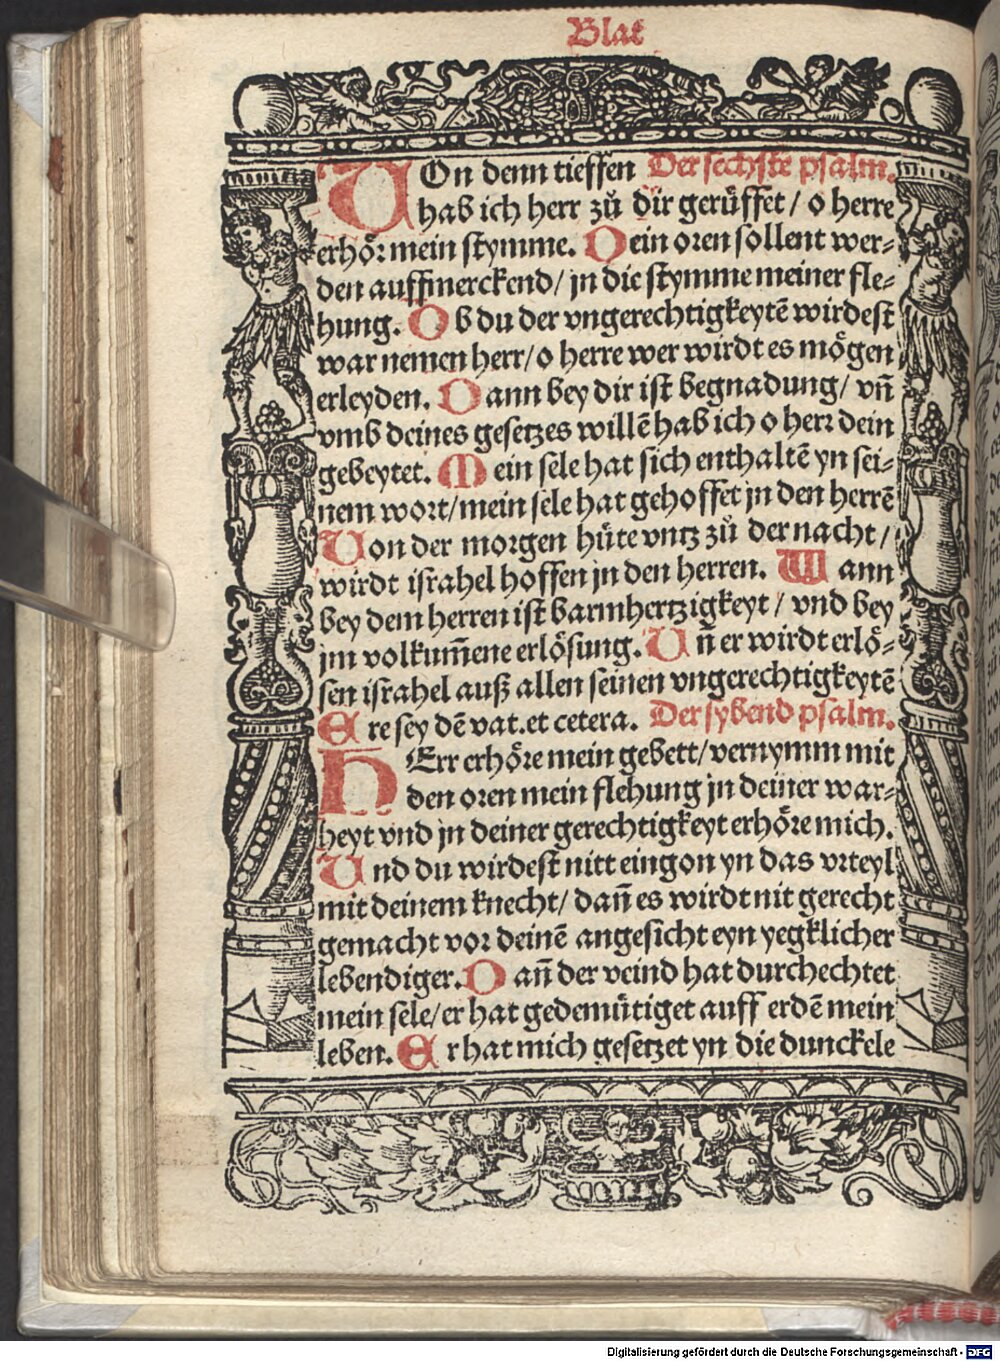 Blat
VOn denn tieffen Der sechste psalm.
hab ich herr zů dir gerüffet / o herre
erhör mein stymme. Dein oren sollent wer⸗
den auffmerckend / jn die stymme meiner fle⸗
hung. Ob du der vngerechtigkeytē wirdest
war nemen herr / o herre wer wirdt es mögen
erleyden. Dann bey dir ist begnadung / vñ
vmb deines gesetzes willē hab ich o herr dein
gebeytet. Mein sele hat sich enthaltē yn sei⸗
nem wort / mein sele hat gehoffet jn den herrē
Von der morgen hüte vntz zů der nacht /
wirdt israhel hoffen jn den herren. Wann
bey dem herren ist barmhertzigkeyt / vnd bey
jm volkum̄ene erlösung. Vñ er wirdt erlö⸗
sen israhel auß allen seinen vngerechtigkeytē
Ere sey dē vat. et cetera. Der sybend psalm.
HErr erhöre mein gebett / vernymm mit
den oren mein flehung jn deiner war⸗
heyt vnd jn deiner gerechtigkeyt erhöre mich.
Vnd du wirdest nitt eingon yn das vrteyl
mit deinem knecht / dañ es wirdt nit gerecht
gemacht vor deinē angesicht eyn yegklicher
lebendiger. Dañ der veind hat durchechtet
mein sele / er hat gedemütiget auff erdē mein
leben. Er hat mich gesetzet yn die dunckele
Digitalisierung gefördert durch die Deutsche Forschungsgemeinschaft - DFG